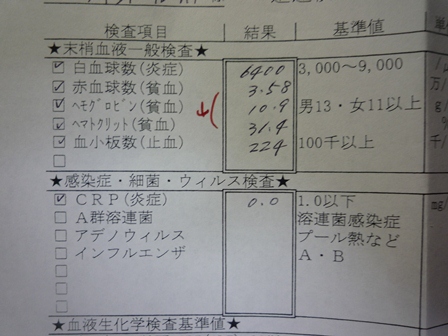 検査項目 結果 基準値
★末梢血液一般検査★
☑ 白血球数(炎症) 6400 3,000～9,000
☑ 赤血球数(貧血) 3.58 万/
☑ ﾍﾓｸﾞﾛﾋﾞﾝ(貧血) 10.9 男13・女11以上 g
☑ ﾍﾏﾄｸﾘｯﾄ(貧血) 31.4 %
☑ 血小板数(止血) 224 100千以上 千/
□
★感染症・細菌・ウィルス検査★
☑ CRP(炎症) 0.0 1.0以下 mg/
□ A群溶連菌 溶連菌感染症
□ アデノウィルス プール熱など
□ インフルエンザ A・B
□
□
□
★血液生化学検査基準値★